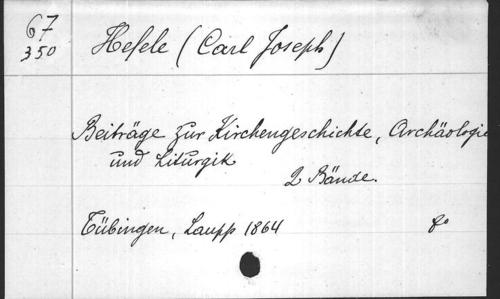 67
350
Hefele (Carl Joseph)
Beiträge zur Kirchengeschichte, Archäologie
und Liturgik
2 Bände.
Tübingen, Laupp 1864 8°